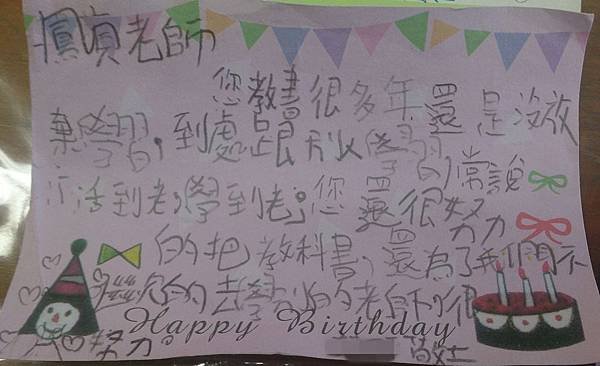 鳳貞老師
您教書很多年還是沒放
棄學習,到處跟別人學習,常說
活到老,學到老。您還很努力
的把教科書,還為了我們不
的去學 的老師很
努力。
Happy Birthday
敬上